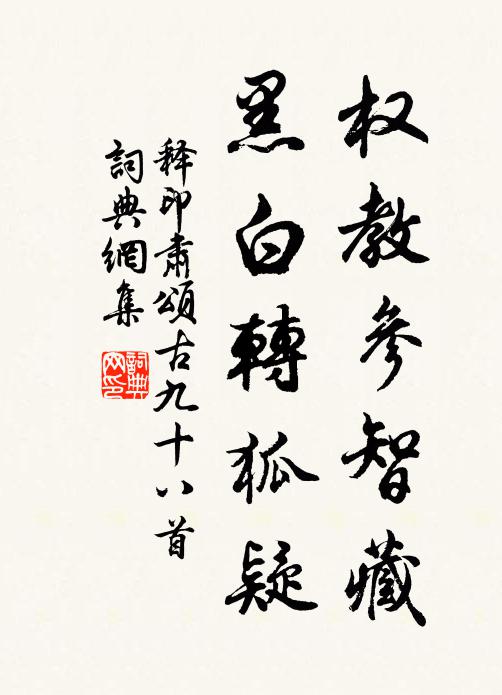 权教参智藏
黑白轉狐疑
释印肃頌古九十八首
詞典網集
詞典網印